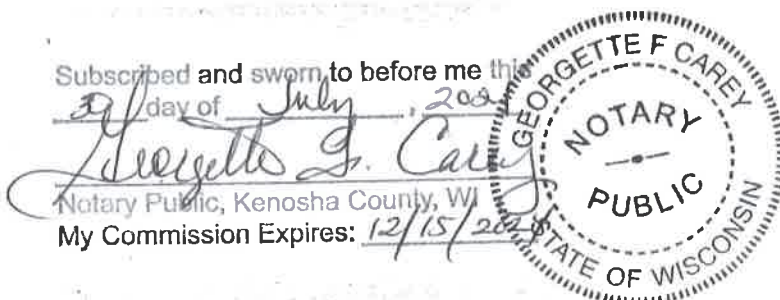 Subscribed and sworn to before me this
day of July,
Georgette F. Carey
Notary Public, Kenosha County, WI
My Commission Expires: 12/15/
GEORGETTE F CAREY
NOTARY
PUBLIC
STATE OF WISCONSIN